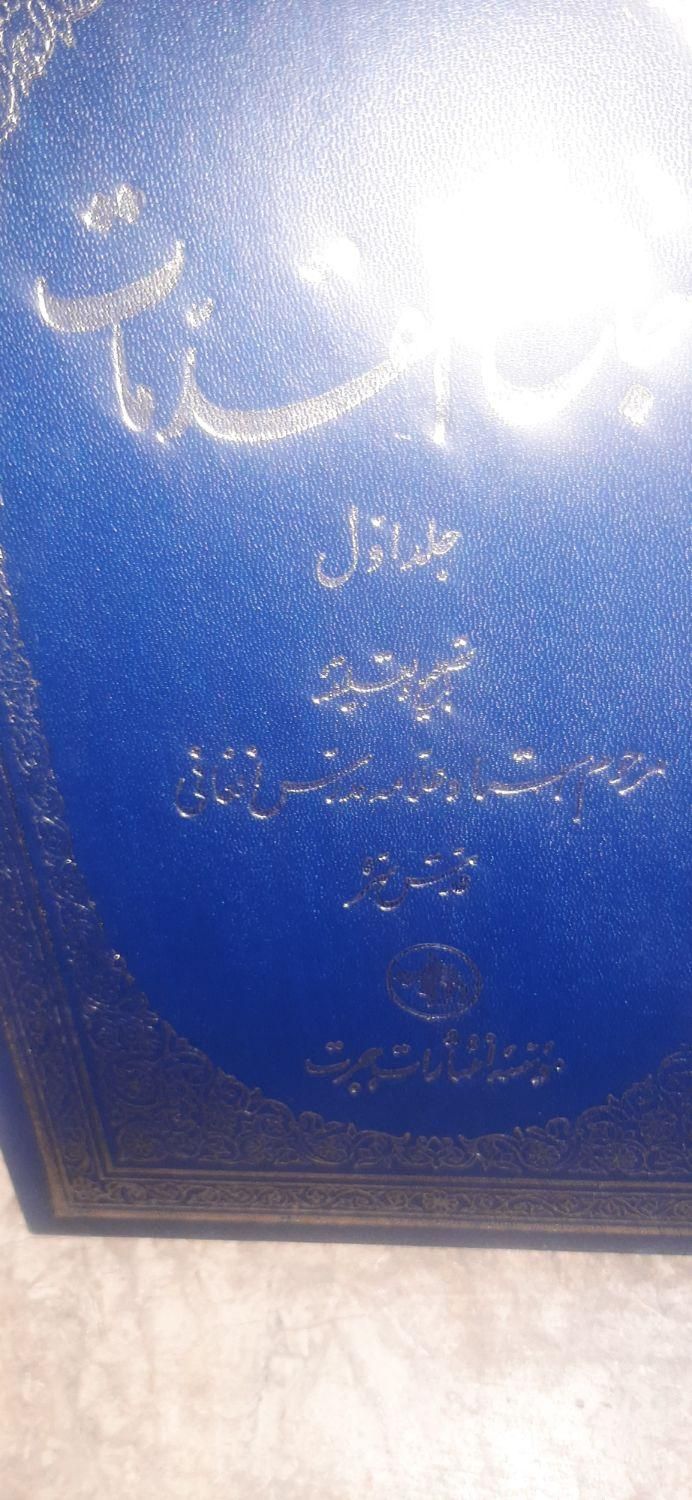 جامع المقدمات
جلد اول
تصحیح و تعلیق
مرحوم استاد علامه مدرس افغانی
قدس سره
مؤسسه انتشارات هجرت